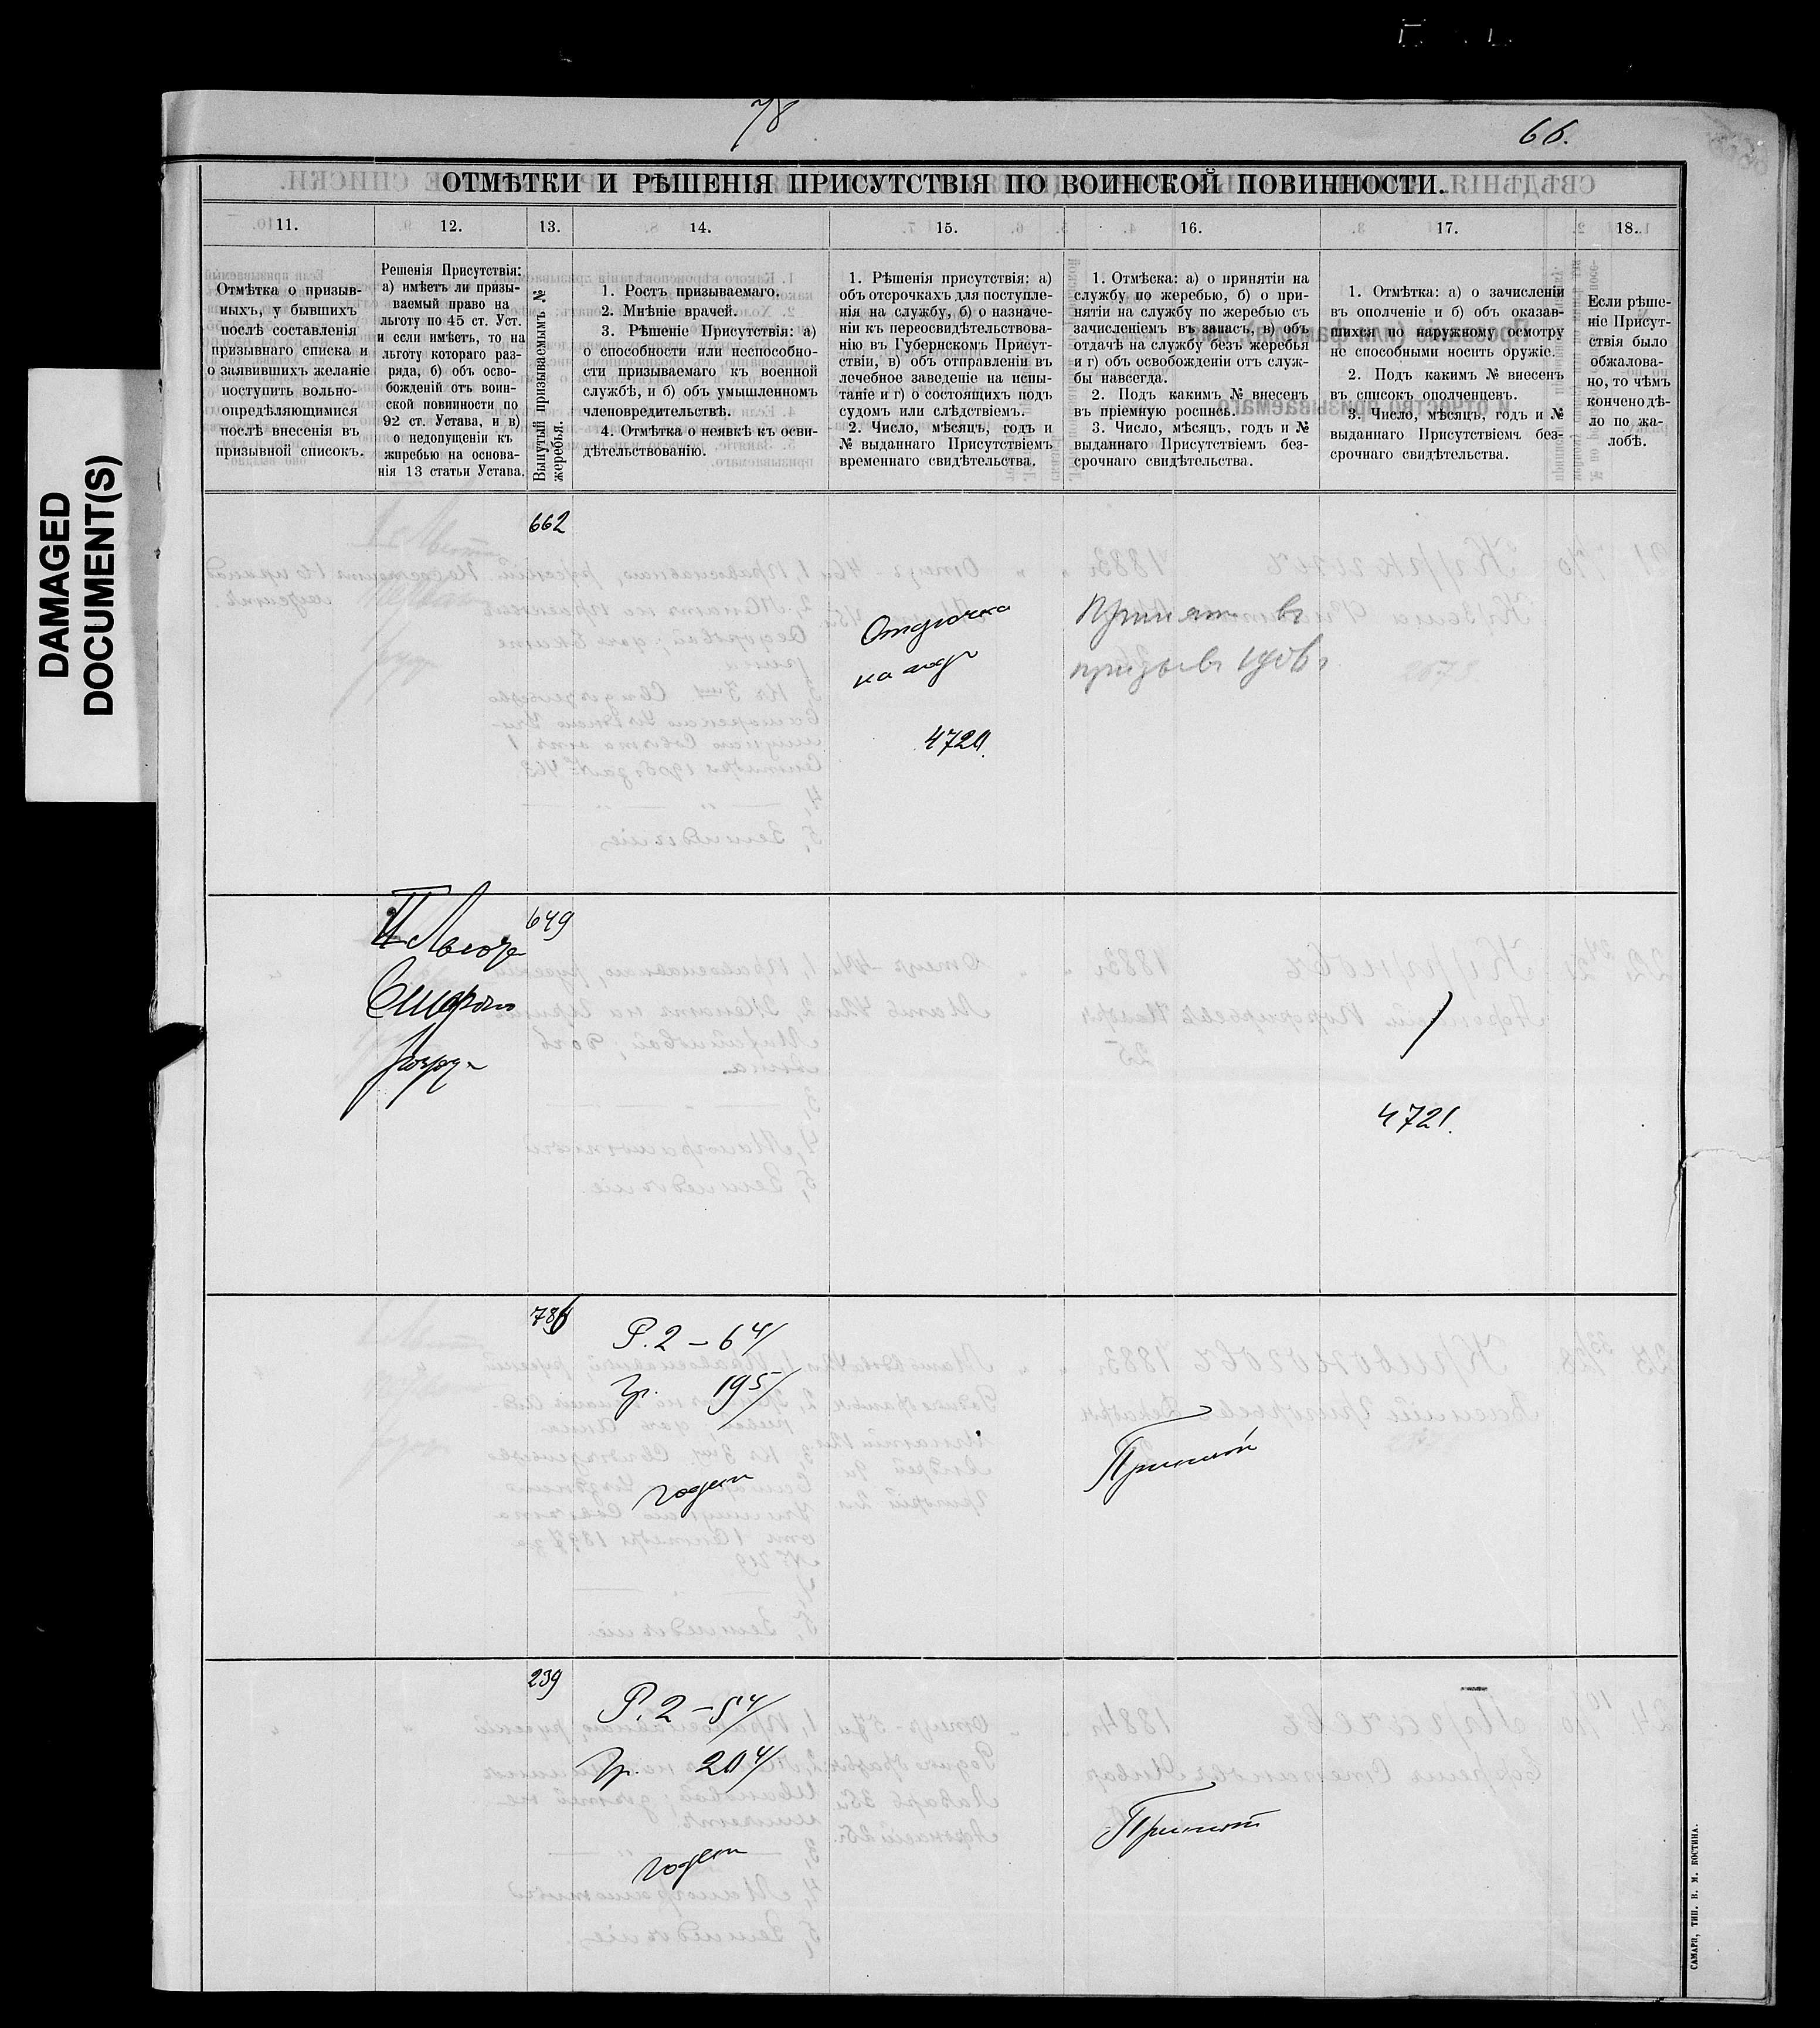 DAMAGED
DOCUMENT(S)
78
66.
ОТМѢТКИ И РѢШЕНІЯ ПРИСУТСТВІЯ ПО ВОИНСКОЙ ПОВИННОСТИ.
11.
12.
13.
14.
15.
16.
17.
18.
Отмѣтка о призыв-
ныхъ, у бывшихъ
послѣ составленія
призывнаго списка и
о заявившихъ желаніе
поступить вольно-
опредѣляющимися
послѣ внесенія въ
призывной списокъ.
Решенія Присутствія:
а) имѣетъ ли призы-
ваемый право на
льготу по 45 ст. Уст.
и если имѣетъ, то на
льготу котораго раз-
ряда, б) объ осво-
божденій отъ воин-
ской повинности по
92 ст. Устава, и в)
о недопущеніи къ
жпребью на основа-
нія 13 статьи Устава.
Вынутый призываемымъ №
жеребья.
1. Ростъ призываемаго.
2. Мнѣніе врачей.
3. Рѣшеніе Присутствія: а)
о способности или неспособно-
сти призываемаго къ военной
службѣ, и б) объ умышленномъ
членовредительствѣ.
4. Отмѣтка о неявкѣ къ осви-
дѣтельствованію.
1. Рѣшенія присутствія: а)
объ отсрочкахъ для поступле-
нія на службу, б) о назначе-
ніи къ переосвидѣтельствова-
нію въ Губернскомъ Присут-
ствіи, в) объ отправленіи въ
лечебное заведеніе на испы-
таніе и г) о состоящихъ подъ
судомъ или слѣдствіемъ.
2. Число, мѣсяцъ, годъ и
№ выданнаго Присутствіемъ
временнаго свидѣтельства.
1. Отмѣска: а) о принятіи на
службу по жеребью, б) о при-
нятіи на службу по жеребью съ
зачисленіемъ въ запасъ, в) объ
отдачѣ на службу безъ жеребья
и г) объ освобожденіи отъ служ-
бы навсегда.
2. Подъ какимъ № внесенъ
въ пріемную роспись.
3. Число, мѣсяцъ, годъ и №
выданнаго Присутствіемъ без-
срочнаго свидѣтельства.
1. Отмѣтка: а) о зачисленіи
въ ополченіе и б) объ оказав-
шихся по наружному осмотру
не способными носить оружіе.
2. Подъ какимъ № внесенъ
въ списокъ ополченцевъ.
3. Число, мѣсяцъ, годъ и №
выданнаго Присутствіемъ без-
срочнаго свидѣтельства.
Если рѣше-
ніе Присут-
ствія было
обжалова-
но, то чѣмъ
кончено дѣ-
ло по жа-
лобѣ.
662
Отсрочка
на годъ
4720.
Принятъ въ
призывъ 1906 г
2678.
649
II Льгот
разряд
4721.
786
Р. 2 – 6 4/
Гр. 195/
годен
Принят
239
Р. 2 – 5 4/
Гр. 20 4/
годен
Принят
САМАРА, ТИП. Н. М. КОСТИНА.